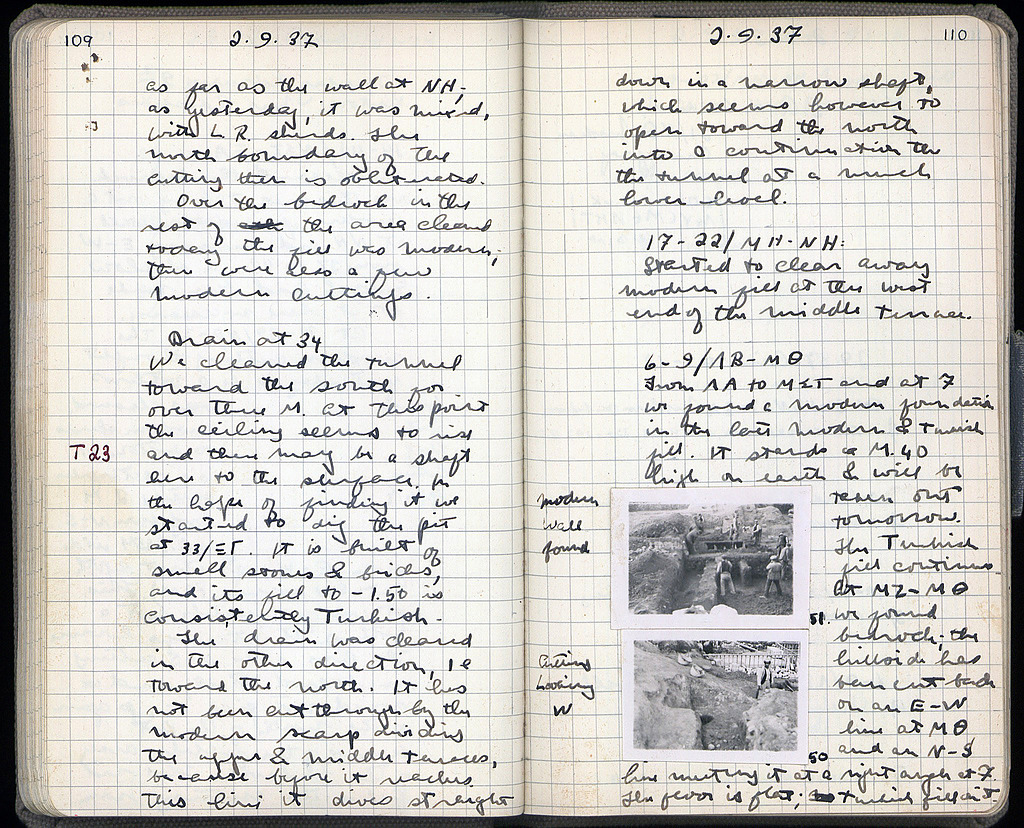 109
2.9.37
as far as the wall at NH;
as yesterday, it was mixed,
with L R. sherds. The
north boundary of the
cutting then is obliterated.
Over the bedrock in the
rest of the area cleared
today the fill was modern;
there were also a few
modern cuttings.
Drain at 34
We cleaned the tunnel
toward the south for
over three M. At this point
the ceiling seems to rise
T 23
and there may be a shaft
here to the surface. In
the hope of finding it we
started to dig the pit
at 33/ΞΓ. It is built of
small stones & bricks,
and its fill to -1.50 is
consistently Turkish.
The drain was cleared
in the other direction, ie
toward the north. It has
not been cut through by the
modern scarp dividing
the upper & middle terraces,
because before it reaches
this line it dives straight
2.9.37
110
down in a narrow shaft,
which seems however to
open toward the north
into a continuation the
the tunnel at a much
lower level.
17-22/MH-NH:
Started to clear away
modern fill at the west
end of the middle terrace.
6-9/ΛB-MΘ
From ΛA to MΣT and at 7
we found a modern foundation
in the late modern & Turkish
fill. It stands a M. 40
high on earth & will be
torn out
tomorrow.
The Turkish
fill continues
At MZ-MΘ
we found
bedrock; the
hillside has
been cut back
on an E-W
line at MΘ
and an N-S
line meeting it at a right angle at 7.
The floor is flat; Turkish fill on it.
modern
wall
found
51
Cutting
Looking
W
50